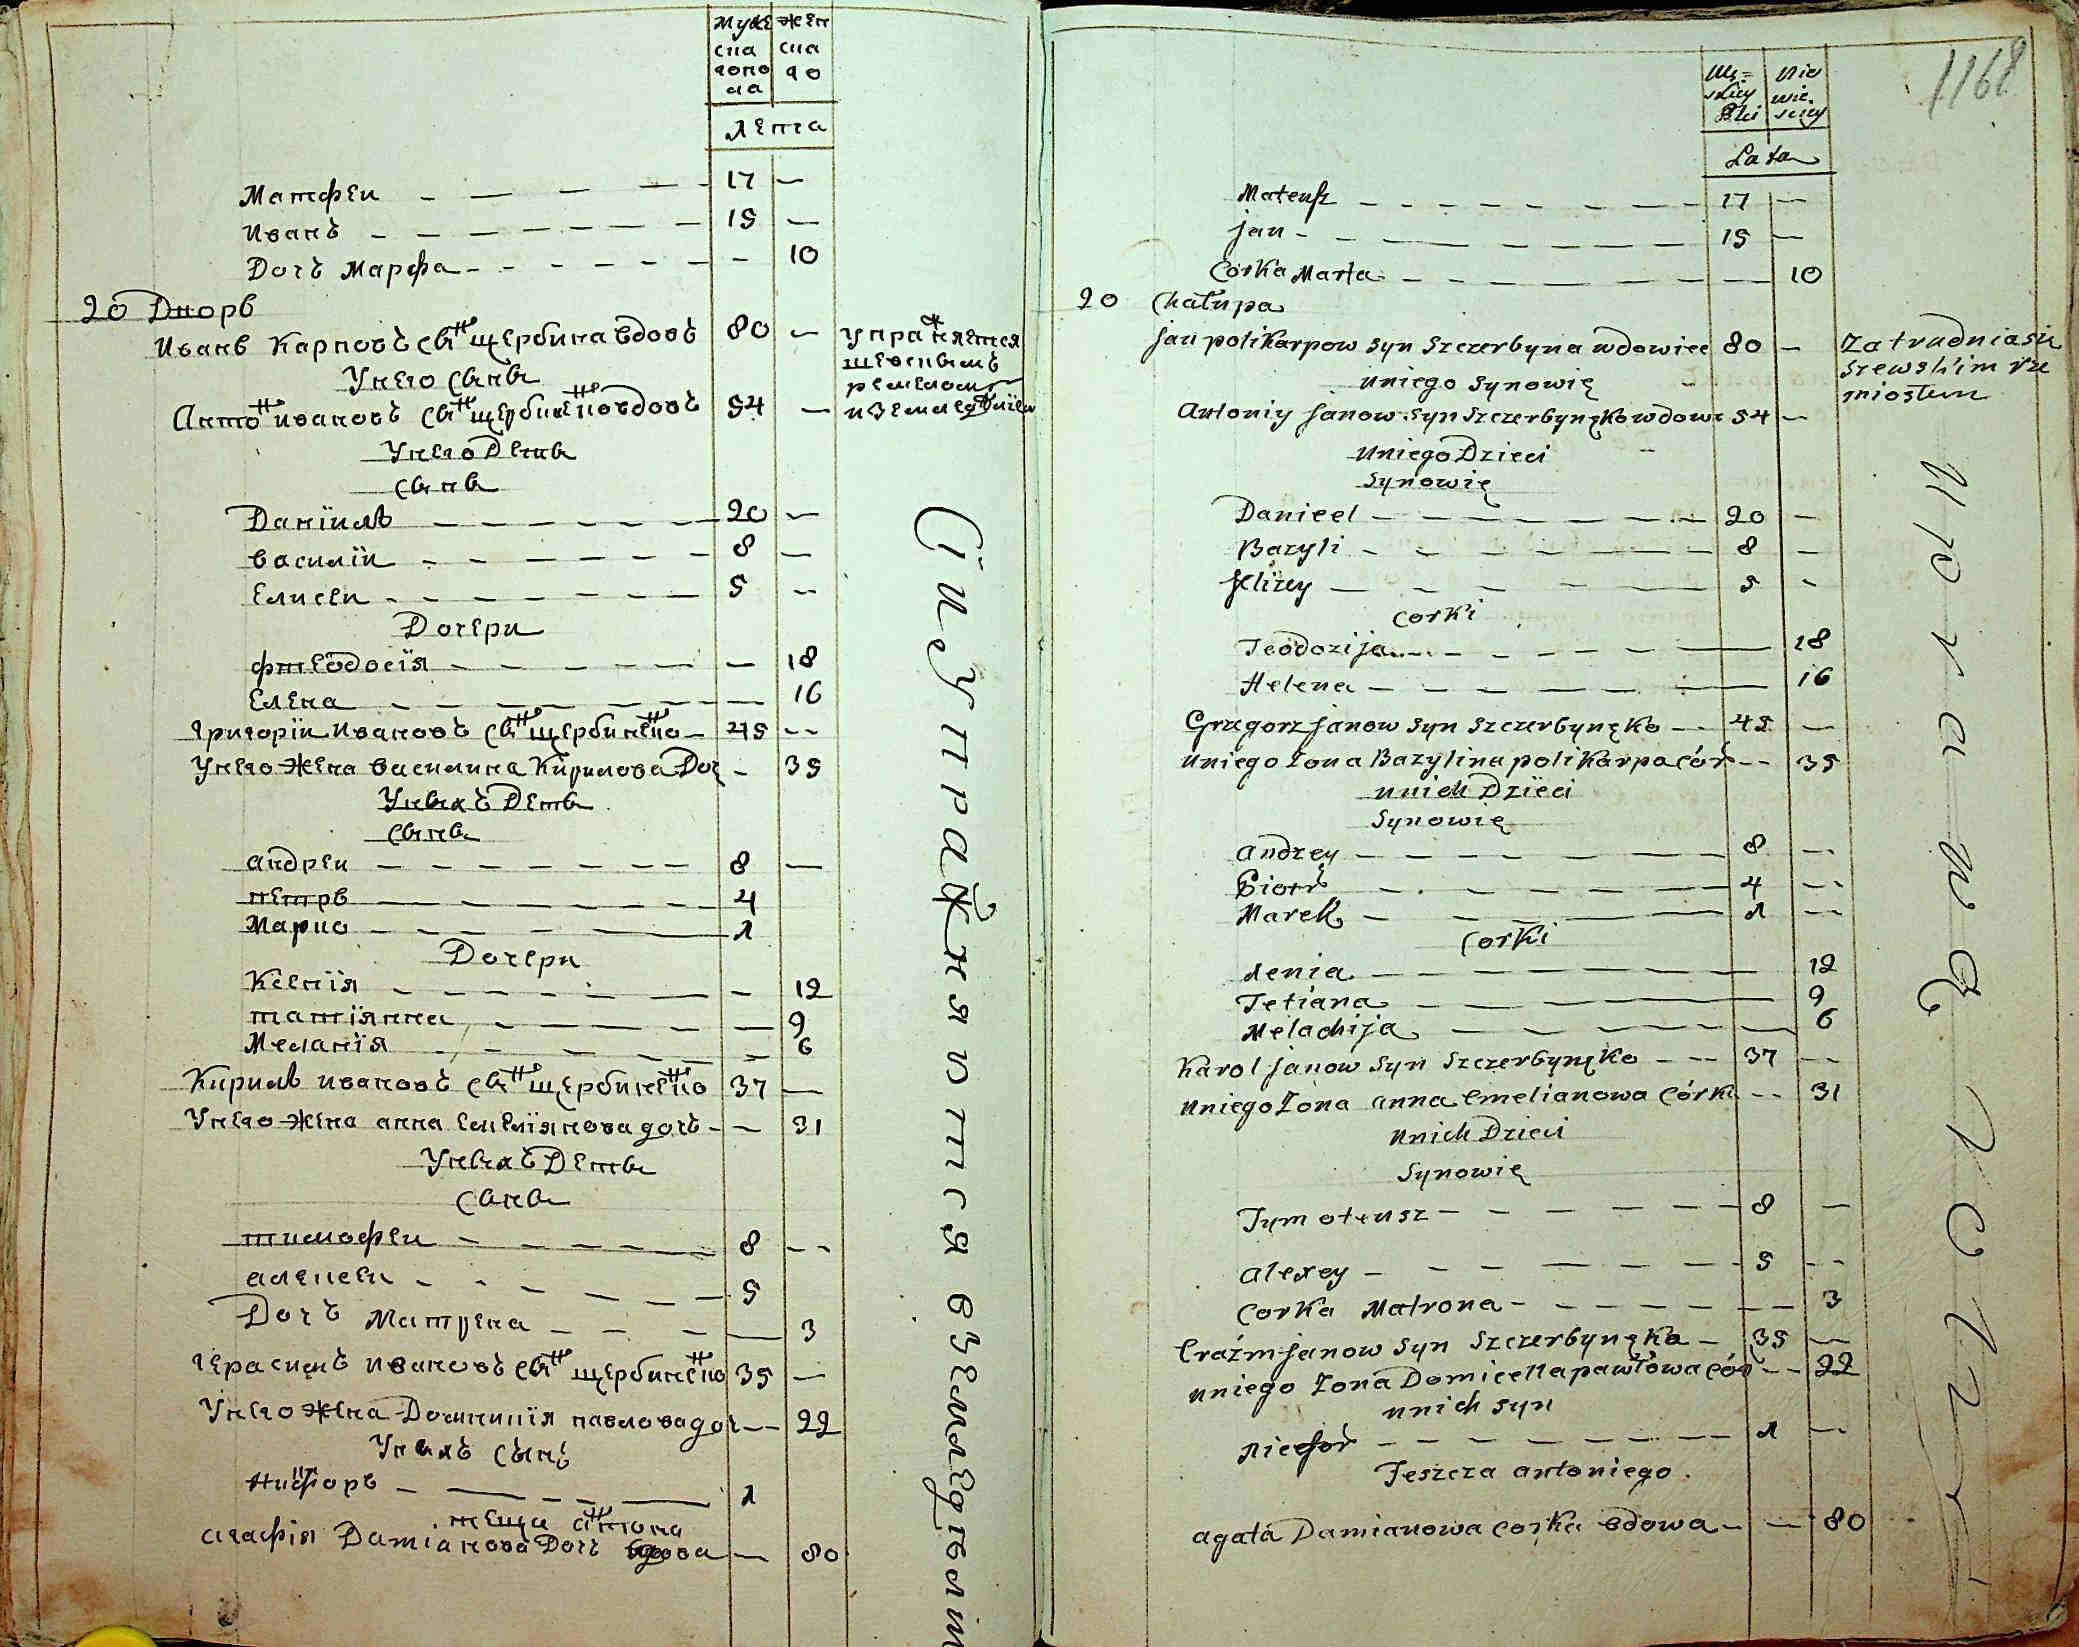 Муже
ска
гопо
ла
Жен
ска
го
лета
Матфеи 17 —
Иванъ 15 —
Дочъ Марфа — 10
20 Дворъ
Иванъ Карповъ снъ щербина вдовъ 80 —
Унего сыны
Анто ивановъ снъ щербиненко вдовъ 54 —
Унего Дети
сыны
Данїилъ 20 —
василїи 8 —
Елисеи 5 —
Дочери
фтеодосїя — 18
Елена — 16
григорїи Ивановъ снъ щербиненко 45 —
Унего Жена василина Кирилова Доч — 35
Унихъ Дети
сыны
андреи 8 —
петръ 4
Марко 1
Дочери
Ксенїя — 12
татїянна — 9
Меланїя — 6
Кирилъ ивановъ снъ щербиненко 37 —
Унего Жена анна Емелїянова дочъ — 31
Унихъ Дети
сыны
тимофеи 8 —
алексеи 5
Дочъ Матрена — 3
герасимъ ивановъ снъ щербиненко 35 —
Унего Жена Доминикїя павлова доч — 22
Унихъ сынъ
Никифоръ 1
теща антона
агафїя Дамїанова Дочъ вдова — 80
упражняется
шевскимъ
ремеслом
и земледелїем
Сїи упражняются вземледелїи
1168
Mę=
skiey
Płci
Nie
wie
sciey
Lata
Mateusz 17 —
Jan 15 —
Corka Marta — 10
20 Chałupa
Jan polikarpow syn Szczerbyna wdowiec 80 —
uniego Synowię
Antoniy Janow syn Szczerbynęko wdowe 54 —
uniego Dzieci
Synowię
Danieel 20 —
Bazyli 8 —
Jelizey 5 —
corki
Teodozija — 18
Helena — 16
Grzegorz Janow syn Szczerbynęko 45 —
uniego Zona Bazylina polikarpa cór — 35
unich Dzieci
Synowię
Andrey 8 —
Piotr 4 —
Marek 1 —
Corki
xenia 12
Tetiana 9
Melachija — 6
Karol Janow syn Szczerbynęko 37 —
uniego Zona anna Emelianowa Córka — 31
unich Dzieci
Synowię
Tymoteusz 8 —
Alexey 5 —
Corka Matrona — 3
Eraźm Janow syn Szczerbynęko 35 —
uniego Zona Domicella pawłowa cór — 22
unich syn
Nicefor 1 —
Teszcza antoniego.
agata Damianowa corka wdowa — 80
Zatrudnia się
szewskim rze
miosłem